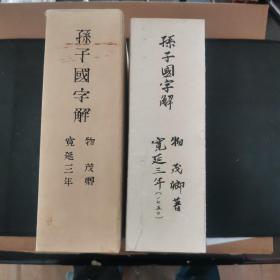 孫子國字解
物茂卿
寛延三年
孫子國字解
物茂卿著
寛延三年(一七五〇)